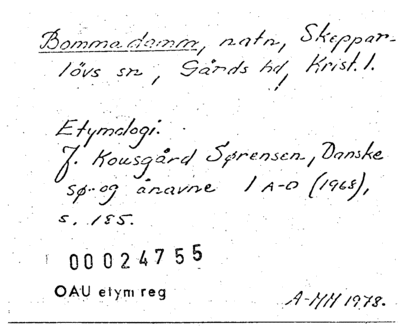 Bommadamm, natn, Skeppar-
lövs sn, Gärds hd, Krist. l.
Etymologi.
J. Kousgård Sørensen, Danske
sø- og ånavne 1 A-D (1968),
s. 185.
00024755
OAU etym reg
A-MM 1978.